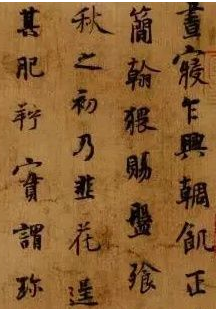 晝寢乍興輖飢正
簡翰猥賜盤飧
秋之初乃韭花逞
其肥羜實謂珍